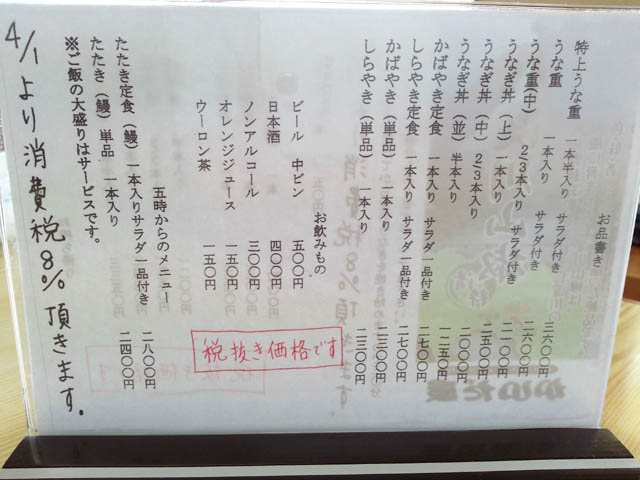 お品書き
特上うな重 一本半入り サラダ付き 三六〇〇円
うな重 一本入り サラダ付き 二六〇〇円
うな重(中) 2/3本入り サラダ付き 二一〇〇円
うなぎ丼(上) 一本入り 二五〇〇円
うなぎ丼(中) 2/3本入り 二〇〇〇円
うなぎ丼(並) 半本入り 一二五〇円
かばやき定食 一本入り サラダ一品付き 二七〇〇円
しらやき定食 一本入り サラダ一品付き 二七〇〇円
かばやき(単品) 一本入り 二三〇〇円
しらやき(単品) 一本入り 二三〇〇円
お飲みもの
ビール 中ビン 五〇〇円
日本酒 四〇〇円
ノンアルコール 三〇〇円
オレンジジュース 一五〇円
ウーロン茶 一五〇円
税抜き価格です
五時からのメニュー
たたき定食(鰻)一本入りサラダ一品付き 二八〇〇円
たたき(鰻)単品 一本入り 二四〇〇円
※ご飯の大盛りはサービスです。
4/1より消費税8%頂きます。